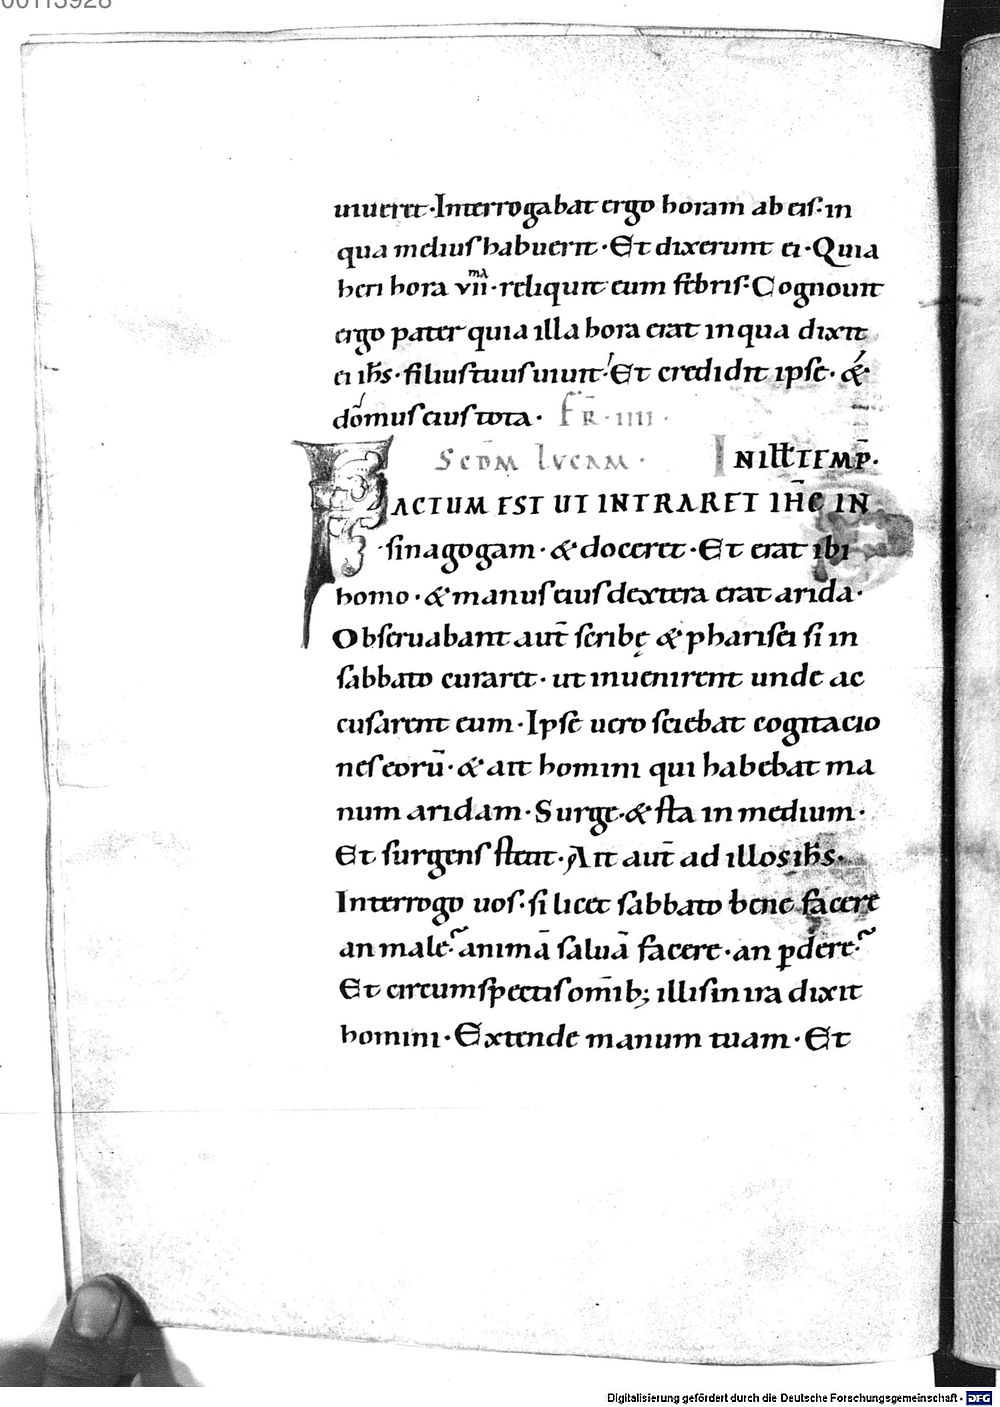 00113928
uiueret·Interrogabat ergo horam ab eis·in
qua melius habuerit·Et dixerunt ei·Quia
heri hora vii ma·reliquit eum febris·Cognouit
ergo pater quia illa hora erat in qua dixit
ei ih̅s·filius tuus uiuit·Et credidit ipse·&·
domus eius tota· F̅R̅·IIII·
SCD̅M LVCAM· IN ILL̅ TEMP̅·
FACTUM EST UT INTRARET IH̅C IN
sinagogam·& doceret·Et erat ibi
homo·& manus eius dextera erat arida·
Obseruabant aut̅ scribę & pharisei si in
sabbato curaret·ut inuenirent unde ac
cusarent eum·Ipse uero sciebat cogitacio
nes eoru̅·& ait homini qui habebat ma
num aridam·Surge·& sta in medium·
Et surgens stetit·Ait aut̅ ad illos ih̅s·
Interrogo uos·si licet sabbato bene facere
an male·anima̅ salua̅ facere·an ꝑdere·
Et circumspectis om̅ib; illis in ira dixit
homini·Extende manum tuam·Et
Digitalisierung gefördert durch die Deutsche Forschungsgemeinschaft - DFG